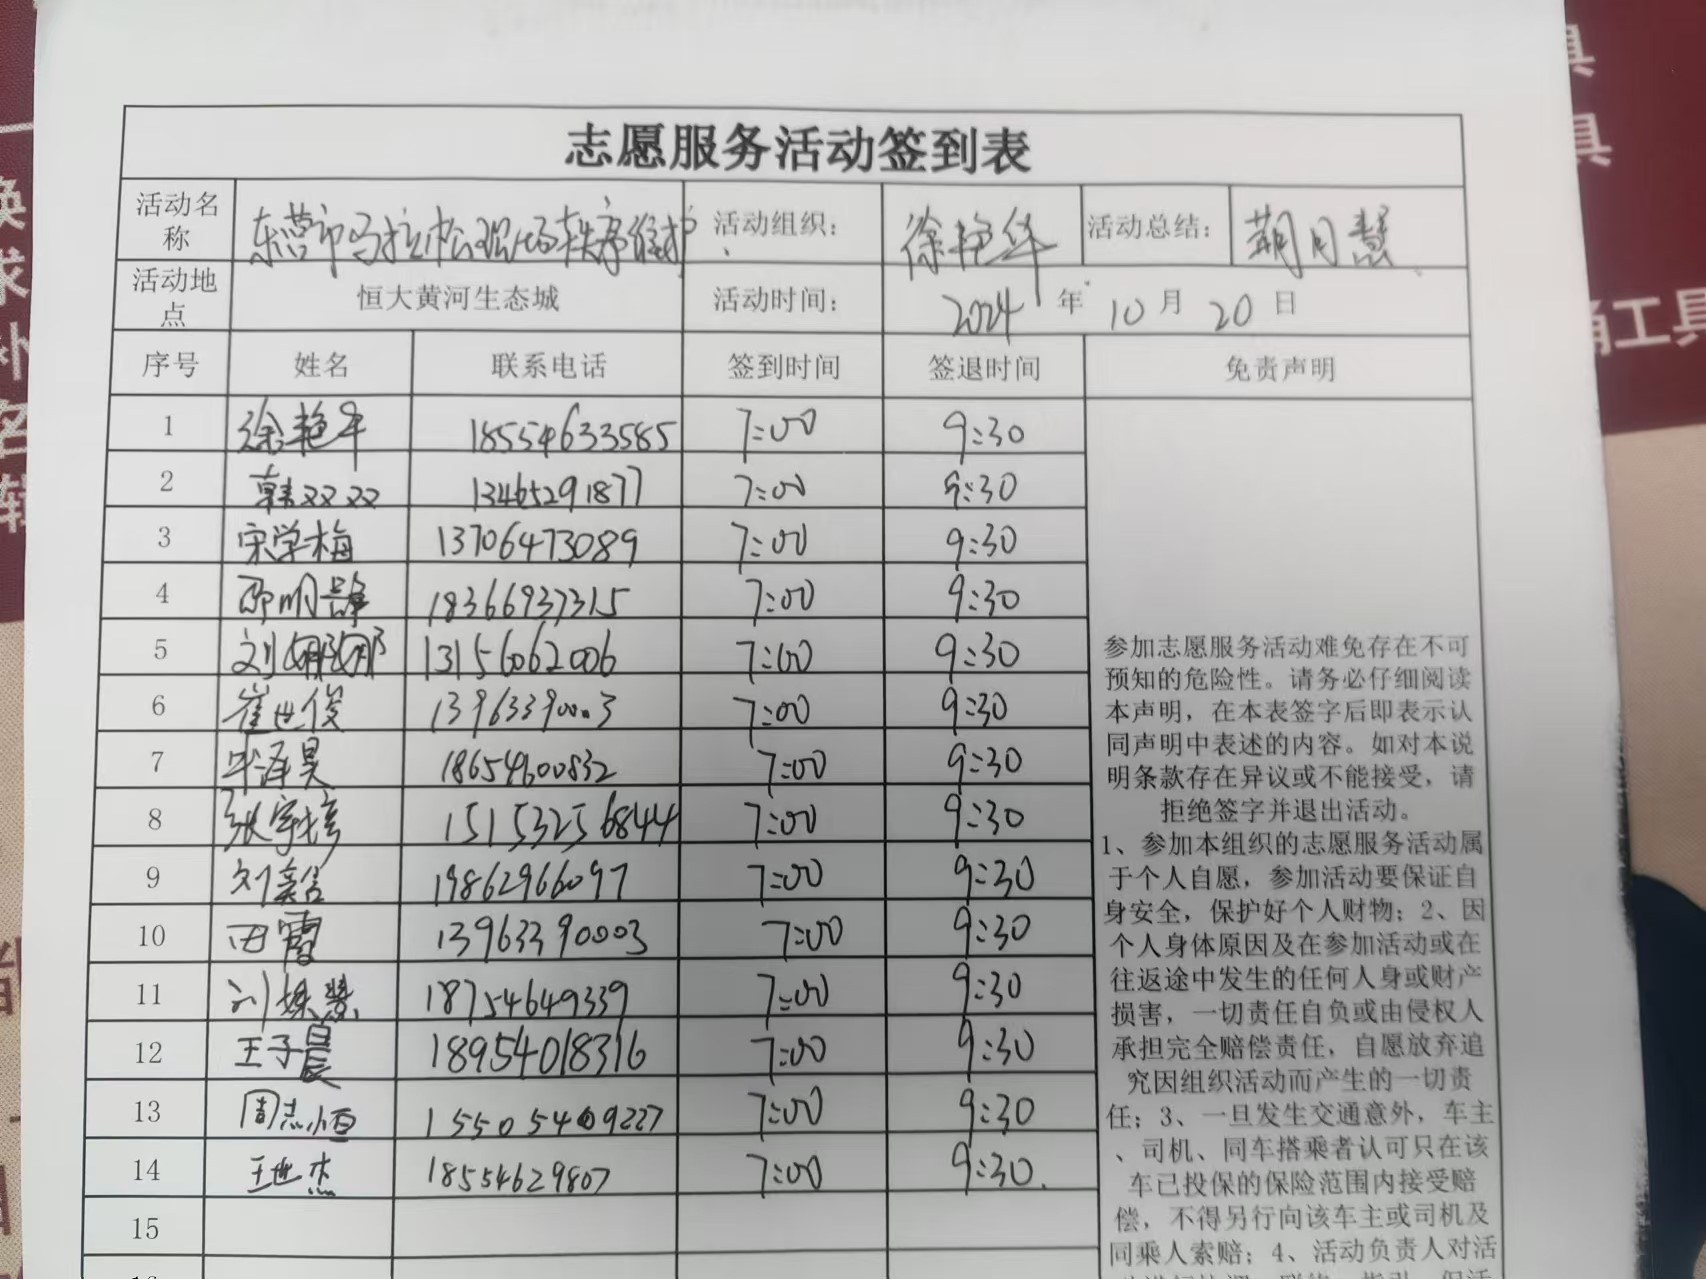 志愿服务活动签到表
活动名称 东营市马拉松现场秩序维护 活动组织： 徐艳华 活动总结： 胡月慧
活动地点 恒大黄河生态城 活动时间： 2024 年 10 月 20 日
序号 姓名 联系电话 签到时间 签退时间 免责声明
1 徐艳华 18554633585 7:00 9:30
2 韩双双 13465291877 7:00 9:30
3 宋学梅 13706473089 7:00 9:30
4 邵明静 18366937315 7:00 9:30
5 刘娜娜 13156062006 7:00 9:30
6 崔世俊 13963390003 7:00 9:30
7 毕泽昊 18654600832 7:00 9:30
8 张宇 15153256844 7:00 9:30
9 刘 19862966097 7:00 9:30
10 田霞 13963390003 7:00 9:30
11 刘姝慧 18754649339 7:00 9:30
12 王子晨 18954018316 7:00 9:30
13 周志恒 15505409227 7:00 9:30
14 王世杰 18554629807 7:00 9:30.
15
参加志愿服务活动难免存在不可
预知的危险性。请务必仔细阅读
本声明，在本表签字后即表示认
同声明中表述的内容。如对本说
明条款存在异议或不能接受，请
拒绝签字并退出活动。
1、参加本组织的志愿服务活动属
于个人自愿，参加活动要保证自
身安全，保护好个人财物；2、因
个人身体原因及在参加活动或在
往返途中发生的任何人身或财产
损害，一切责任自负或由侵权人
承担完全赔偿责任，自愿放弃追
究因组织活动而产生的一切责
任；3、一旦发生交通意外，车主
、司机、同车搭乘者认可只在该
车已投保的保险范围内接受赔
偿，不得另行向该车主或司机及
同乘人索赔；4、活动负责人对活
具
具
工具
换
求
补
名
辑